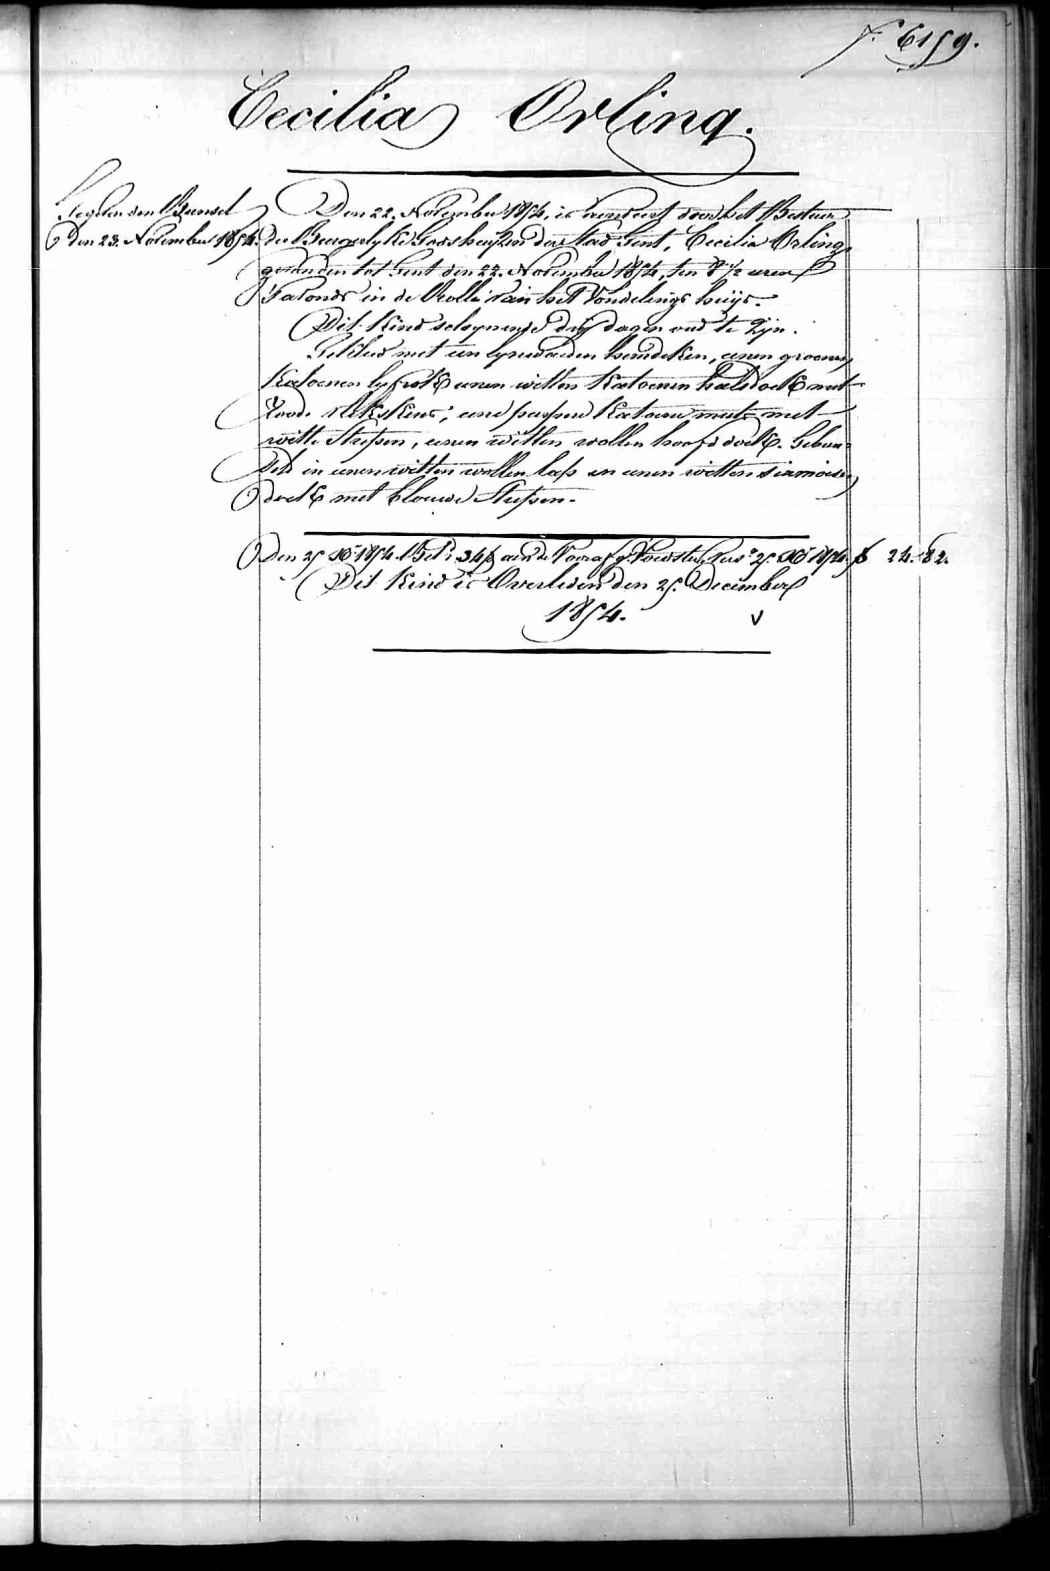 f. 6159.
Cecilia Orlinq.
Den 23. November 1854.
Den 22. November 1854, is aenveert door het Bestuer
der Burgerlyke Godshuyzen der Stad Gent, Cecilia Orlinq,
gevonden tot Gent den 22. November 1854, ten 8 1/2 uren
s'avonds in de Rolle van het Vondelings huijs.
Dit kind scheynende drij dagen oud te zijn.
Gekleed met een lynwaeden hemdeken, eenen groenen
katoenen lyfrok eenen witten katoenen halsdoek met
roode vlekskens, eene katoene muts met
witte strepen, eenen witten wollen hoofd doek. Gebun-
deld in eenen witten wollen lap en eenen witten siamoise
doek met blauwe strepen.
Den 25 Xb 1854 Bet. 346 aen de Voedster 25 Xb 1854. f 24. 82.
Dit kind is Overleden den 25. December
1854. v